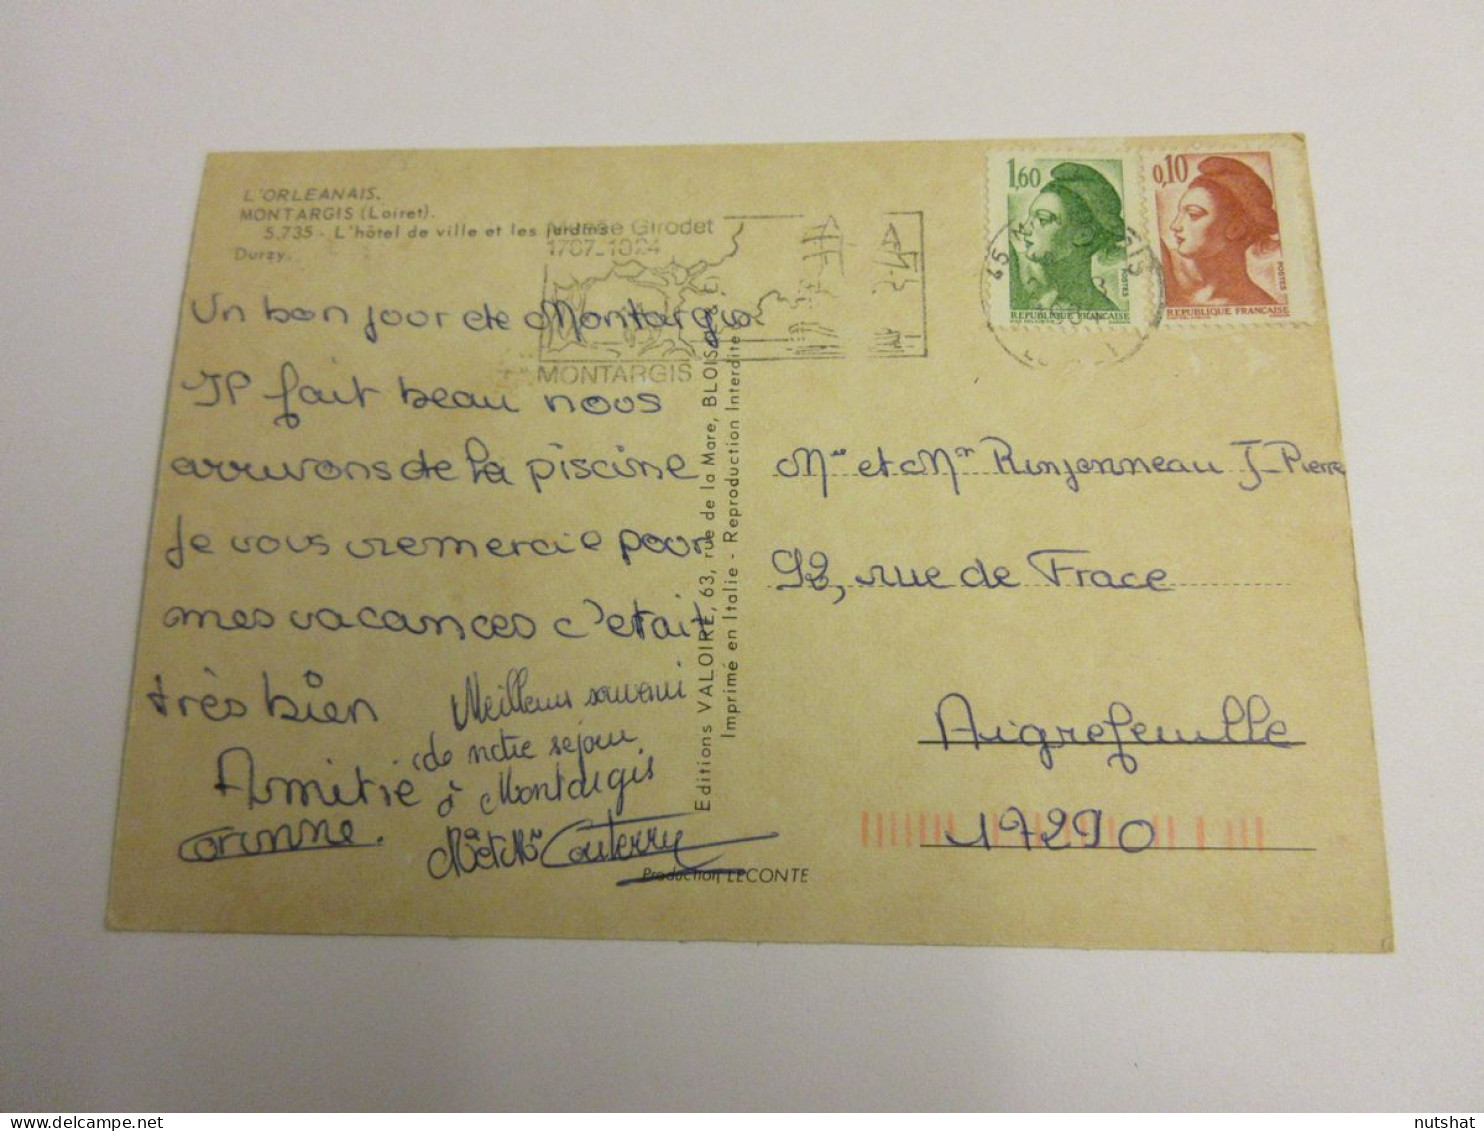 L'ORLEANAIS.
MONTARGIS (Loiret).
5.735 - L'hôtel de ville et les jardins
Durzy.
Musée Girodet
MONTARGIS
1,60
POSTES
REPUBLIQUE FRANÇAISE
0,10
POSTES
REPUBLIQUE FRANÇAISE
Un bon jour de Montargis
Il fait beau nous
arrivons de la piscine
Je vous remercie pour
mes vacances c'etait
très bien
Amitié
corinne.
Meilleur souvenir
de notre séjour
à Montargis
Editions VALOIRE, 63, rue de la Mare, BLOIS
Imprimé en Italie - Reproduction Interdite
Production LECONTE
Mme et Mr Rinjonneau J-Pierre
92, rue de Frace
Aigrefeuille
17290
nutshat
delcampe.net